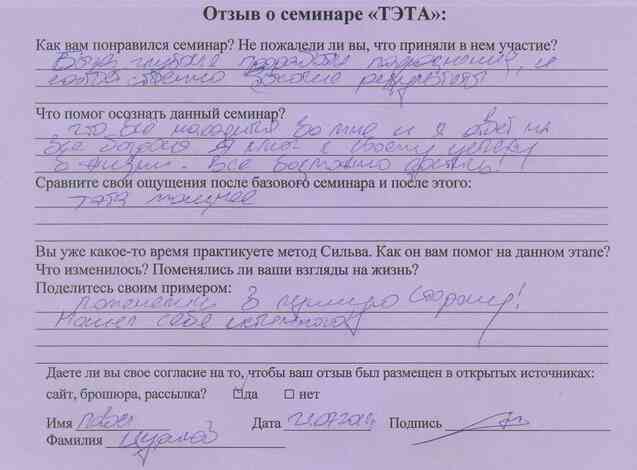 Отзыв о семинаре «ТЭТА»:
Как вам понравился семинар? Не пожалели ли вы, что приняли в нем участие?
Более глубокие проработки подсознания, и
соответственно высокие результаты
Что помог осознать данный семинар?
что все находится во мне и я ответ на
все вопросы Я ключ к своему успеху
в жизни. Все возможно достичь!
Сравните свои ощущения после базового семинара и после этого:
тэта мощнее
Вы уже какое-то время практикуете метод Сильва. Как он вам помог на данном этапе?
Что изменилось? Поменялись ли ваши взгляды на жизнь?
Поделитесь своим примером:
поменялись в лучшую сторону!
Нашел себя истинного
Даете ли вы свое согласие на то, чтобы ваш отзыв был размещен в открытых источниках:
сайт, брошюра, рассылка? да нет
Имя Павел Дата Подпись
Фамилия